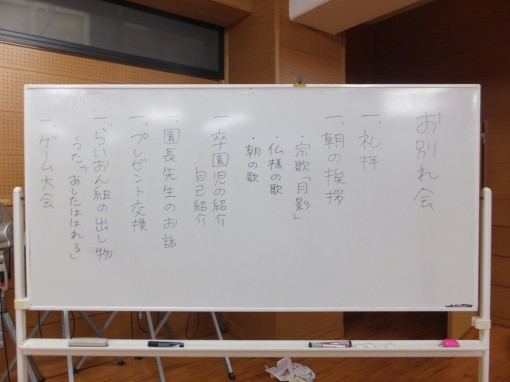 お別れ会
一、礼拝
一、朝の挨拶
・宗歌「月影」
・仏様の歌
・朝の歌
一、卒園児の紹介
自己紹介
一、園長先生のお話
一、プレゼント交換
一、らいおん組の出し物
うた「あしたははれる」
一、ゲーム大会